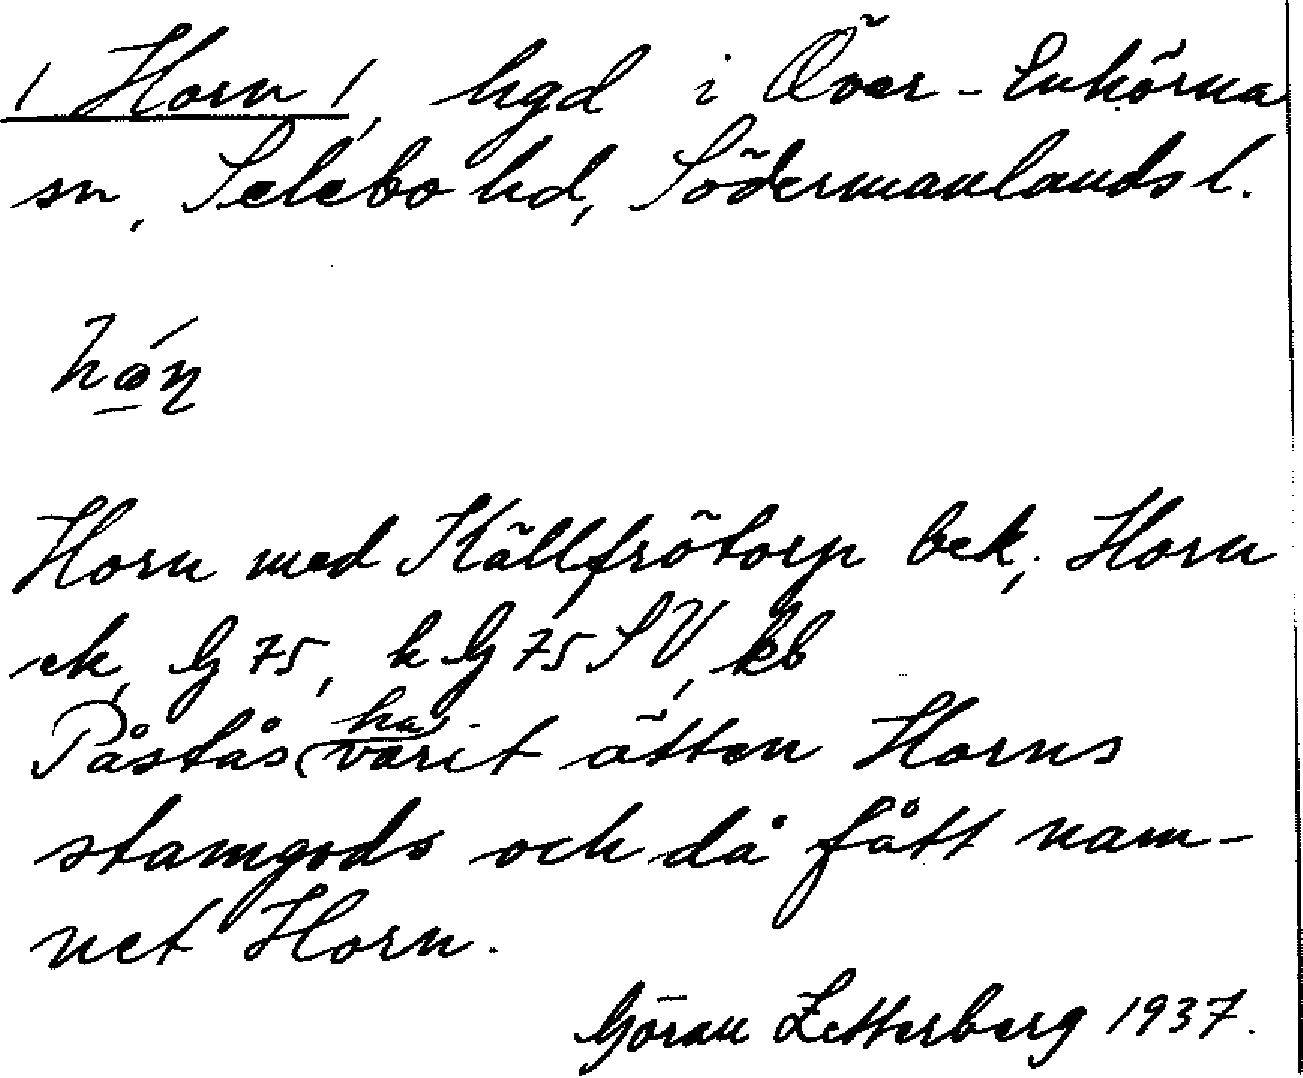 / Horn /, hgd i Över-Enhörna
sn, Selebo hd, Södermanlands l.
Horn med Källfrötorp bek; Horn
ek, G 75, k G 75 SV, kb
Påstås ha varit ätten Horns
stamgods och då fått nam-
net Horn.
Göran Zetterberg 1937.